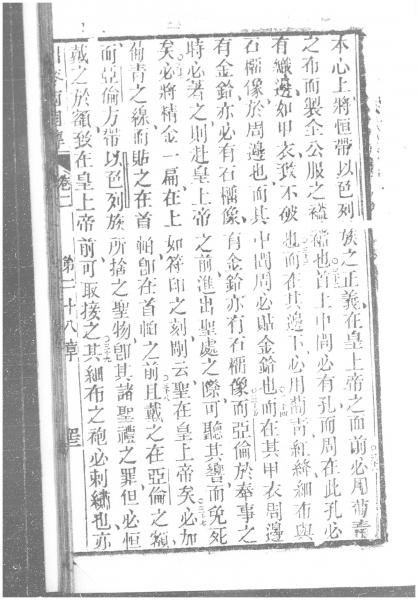 本心上將恒帶以色列族之正義在皇上帝之面前必用葡青
之布而製全公服之襤襤也首上中間必有孔而周在此孔必
有織邊如甲衣致不破也而在其邊下必用葡青紅絲細布與
石榴像於周邊也而其中間周必貼金鈴也而在其甲衣周邊
有金鈴亦必有石榴像有金鈴亦有石榴像而亞倫於奉事之
時必著之則赴皇上帝之前進出聖處之際可聽其響而免死
矣必將精金一扁在上如符印之刻剛云聖在皇上帝矣必加
葡青之線而貼之在首帕卽在首帕之前且戴之在亞倫之額
而亞倫方帶以色列族所捨之聖物卽其諸聖禮之罪但必恒
戴之於額致在皇上帝前可取接之其細布之袍必刺繡也亦
卷二 第二十八章